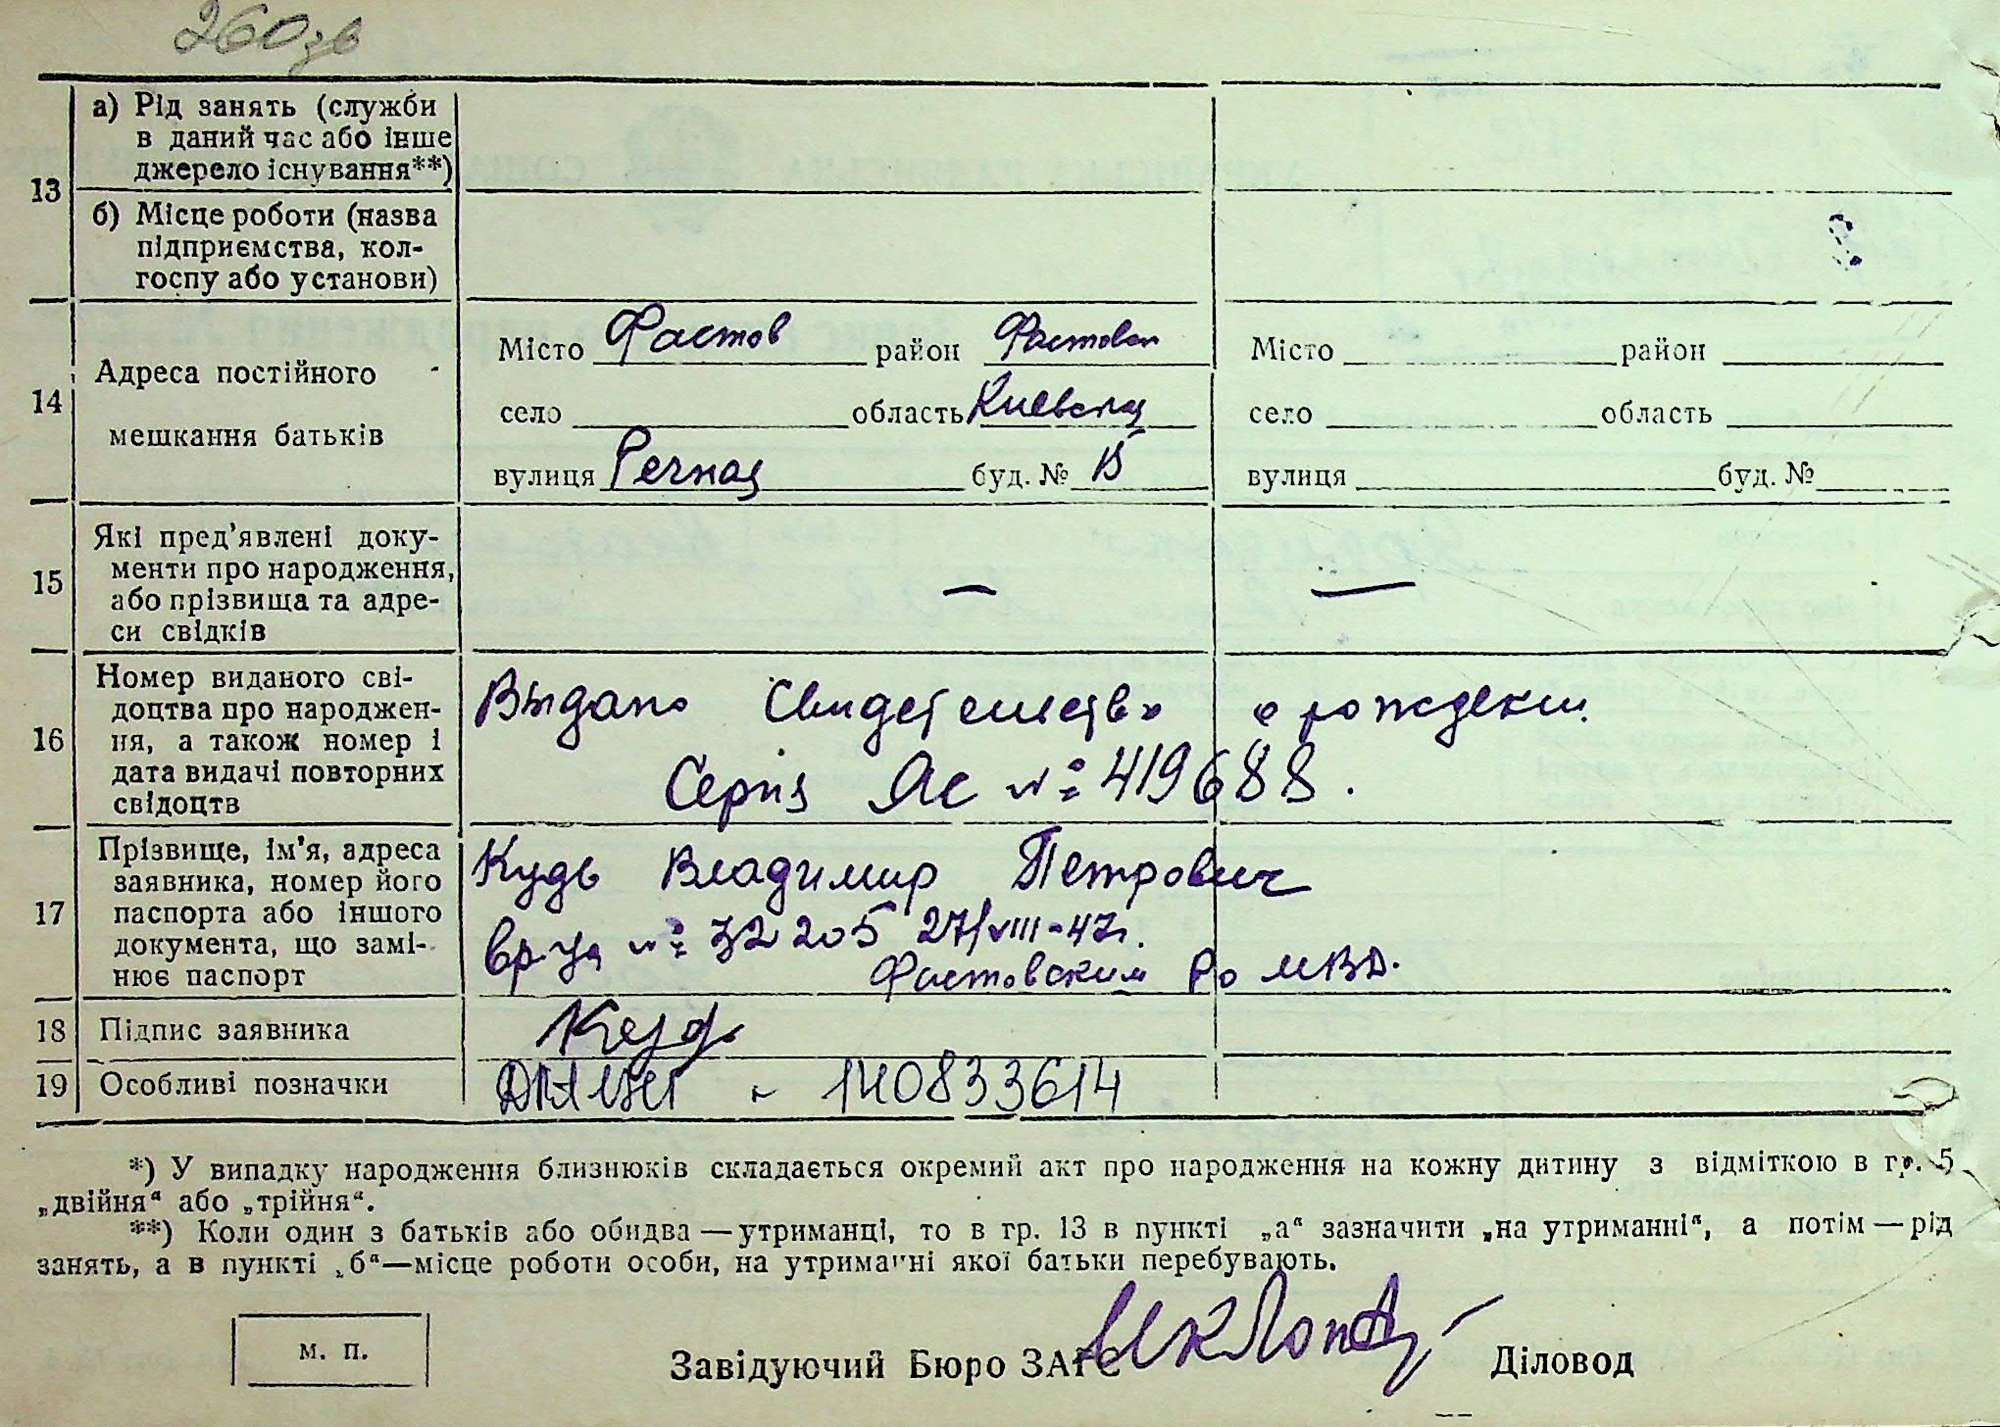 260зв
13 а) Рід занять (служби
в даний час або інше
джерело існування**)
б) Місце роботи (назва
підприємства, кол-
госпу або установи)
14 Адреса постійного
мешкання батьків
Місто Фастов район Фастовск
село область Киевская
вулиця Речная буд. №
Місто район
село область
вулиця буд. №
15 Які пред'явлені доку-
менти про народження,
або прізвища та адре-
си свідків
— —
16 Номер виданого сві-
доцтва про народжен-
ня, а також номер і
дата видачі повторних
свідоцтв
Выдано Свидетельство о рождении
Серия ЯС №: 419688.
17 Прізвище, ім'я, адреса
заявника, номер його
паспорта або іншого
документа, що замі-
нює паспорт
Кудь Владимир Петрович
вр. уд №: 32205 27/VIII-47г.
Фастовским РО МВД.
18 Підпис заявника
19 Особливі позначки
- 140833614
*) У випадку народження близнюків складається окремий акт про народження на кожну дитину з відміткою в гр. 5
„двійня“ або „трійня“.
**) Коли один з батьків або обидва — утриманці, то в гр. 13 в пункті „а“ зазначити „на утриманні“, а потім — рід
занять, а в пункті „б“—місце роботи особи, на утриманні якої батьки перебувають.
м. п.
Завідуючий Бюро ЗАГС Діловод